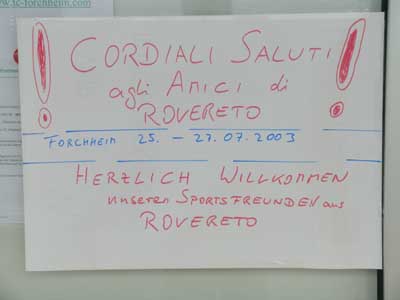 www.tc-forchheim.com
! CORDIALI SALUTI !
agli AMICI di
ROVERETO
FORCHHEIM 25. – 27.07.2003
HERZLICH WILLKOMMEN
unseren SPORTSFREUNDEN aus
ROVERETO